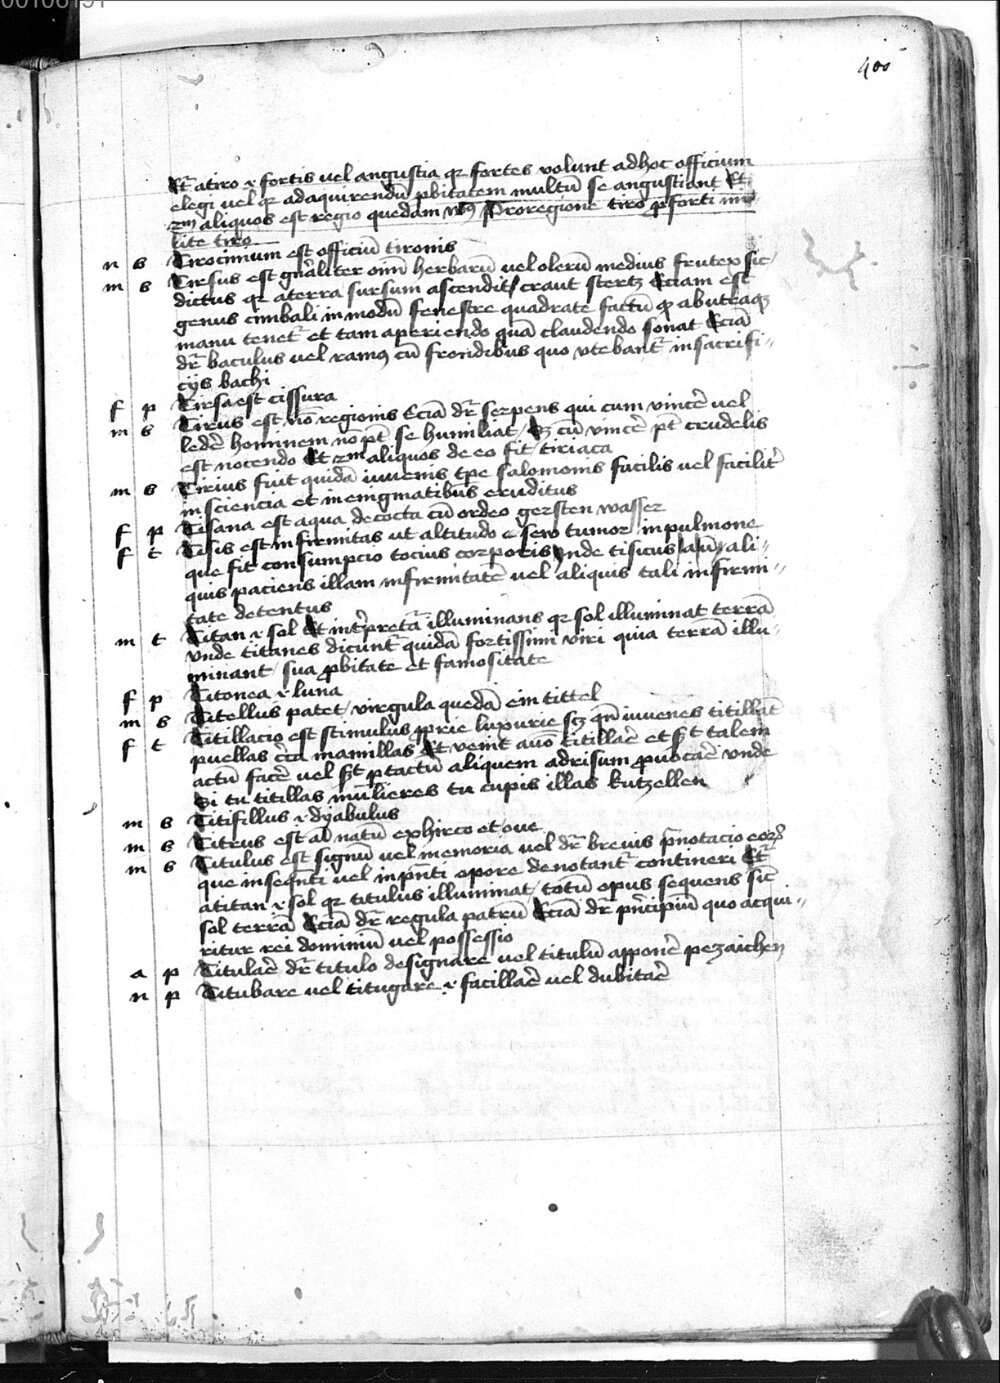 00106191
400
Et̃ a tiro .i. fortis vel angustia qꝛ fortes volunt ad hoc officium
elegi vel qꝛ ad aquirendũ ꝓbitatem multũ se angustiant Et
aliquos est regio quedam Pro regione tiro ꝓ forti mi-
lite tiro
n s Tirocinium est officiũ tironis
m s Tirsus est gñaliter oĩm herbarũ vel olerũ medius frutex sic
dictus qꝛ a terra sursum ascendit / craut stertz Eciam est
genus cimbali in modũ fenestre quadrate factũ qꝫ ab utraqꝫ
manu tenet̃ et tam aperiendo quã claudendo sonat Eciã
dr̃ baculus vel ramꝰ cũ frondibus quo vtebant̃ in sacrifi-
cijs bachi
f p Tirsa est cissura
m s Tirus est nõ regionis Eciã dr̃ serpens qui cum vincẽ vel
ledẽ hominem nõ pt̃ se humiliat / Sꝫ cũ vincẽ pt̃ crudelis
est nocendo Et aliquos de eo fit / tiriaca
m s Tirius fuit quidã iuuenis tp̃e salomonis facilis vel facilit̃
in sciencia et in enigmatibus eruditus
f p Tisana est aqua decocta cũ ordeo gersten wasser
f t Tisis est infirmitas ut altitudo seu tumor in pulmone
que fit consumpcio tocius corporis vnde tisicus ali-
quis paciens illam infirmitatẽ vel aliquis tali infirmi-
tate detentus
m t Titan .i. sol Et int̃pretat̃ illuminans qꝛ sol illuminat terrã
vnde titanes dicunt̃ quidã fortissimi viri quia terrã illu-
minant / sua ꝓbitate et famositate
f p Titonea .i. luna
m s Titellus patet / virgula quedã ein tittel
f t Titillacio est stimulus ꝓprie luxurie sꝫ qñ iuuenes titillãt
puellas c̃ca mamillas Et venit a vb̃o titillãe et talem
actũ facẽ vel ꝑ tactũ aliquem ad risum ꝓuocãe vnde
Si tu titillas mulieres tu cupis illas kutzellen
m s Titifillus .i. dyabulus
m s Titrus est aĩal natũ ex hirco et oue
m s Titulus est signũ vel memoria vel dr̃ breuis p̃notacio eoꝝ
que in seqñti vel in pñti opore denotant̃ contineri Et̃
a titan .i. sol qꝛ titulus illuminat / totũ opus sequens sic̃
sol terrã Eciã dr̃ regula patrũ Eciã dr̃ pñcipiũ quo acqui-
ritur rei dominiũ vel possessio
a p Titulãe dr̃ titulo designare vel titulũ apponẽ pezaichen
n p Titubare vel titugare .i. facillãe vel dubitãe